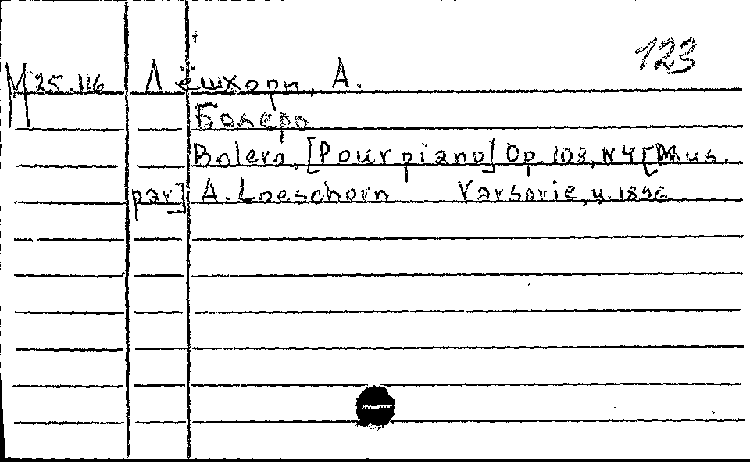 123
М 25.116 Лёшхорн, А.
Болеро
Bolero. [Pour piano] Op. 108, N4 [Mus.
par] A. Loeschorn Varsovie, ц. 1896